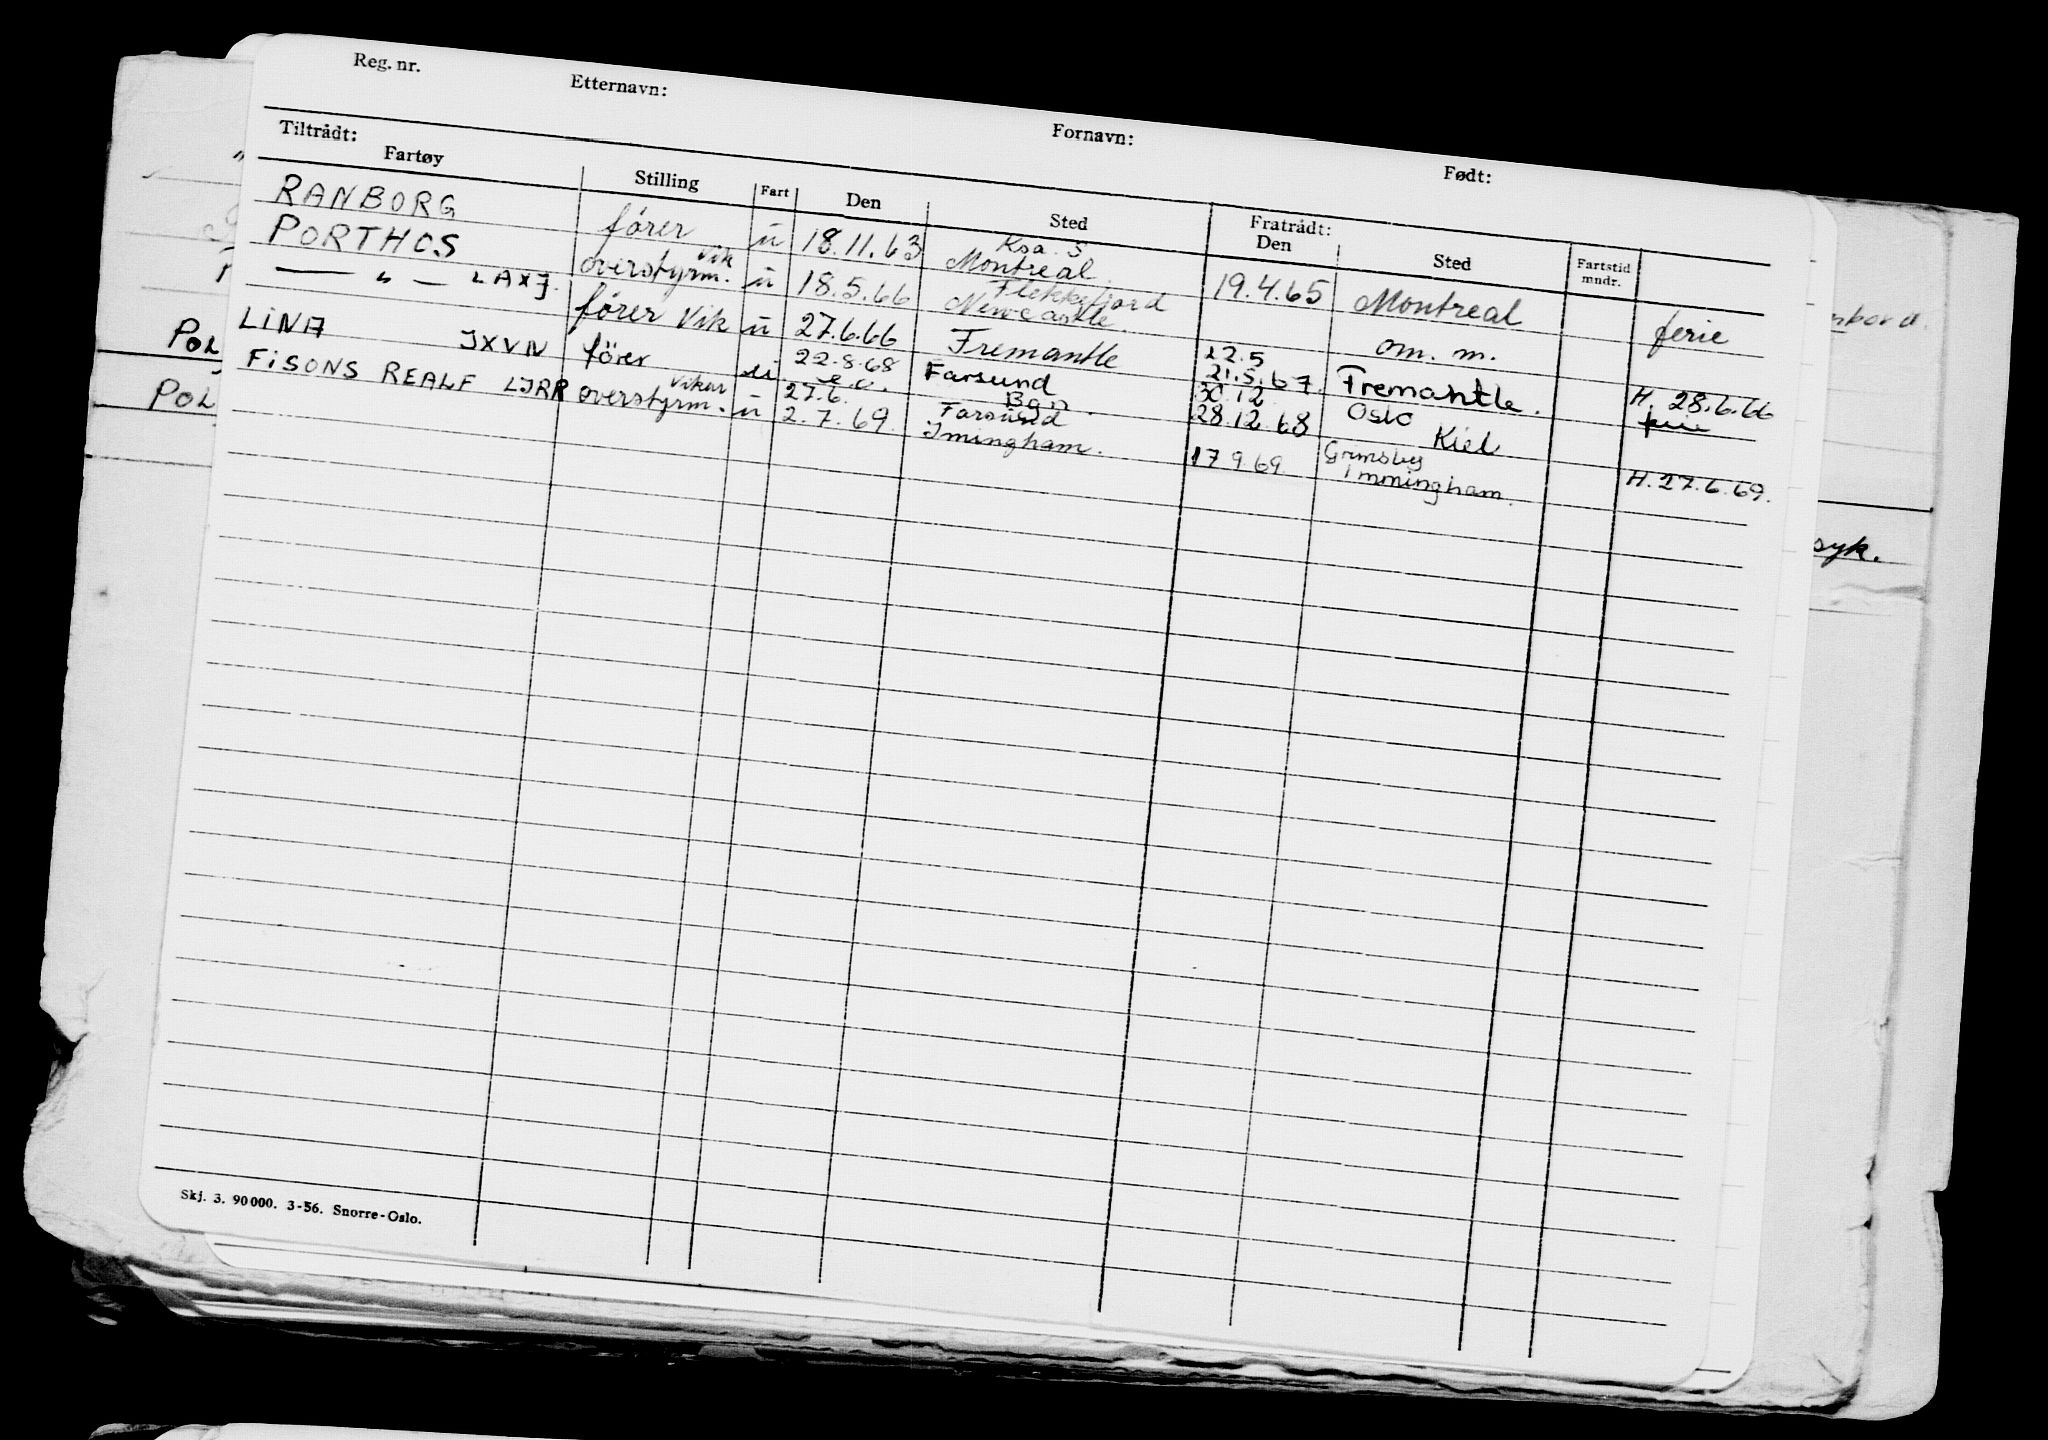 Reg. nr. Etternavn: Fornavn: Født:
Tiltrådt: Fratrådt:
Fartøy Stilling Fart Den Sted Den Sted Fartstid mndr.
RANBORG fører u 18.11.63 Montreal 19.4.65 Montreal ferie
PORTHOS overstyrm. Vik u 18.5.66 Flekkefjord Newcastle om. m. H. 28.6.66
— " — LAXJ. fører Vik u 27.6.66 Fremantle 22.5 21.5.67. Fremantle. ferie
LINA JXVN fører u 22.8.68 Farsund 30.12 28.12.68 Oslo Kiel
FISONS REALF LJRR overstyrm. Vikar u 27.6. 2.7.69. Farsund Imingham. 17.9.69 Grimsby Immingham. H. 27.6.69.
POL
POL
syk.
Skj. 3. 90000. 3-56. Snorre-Oslo.